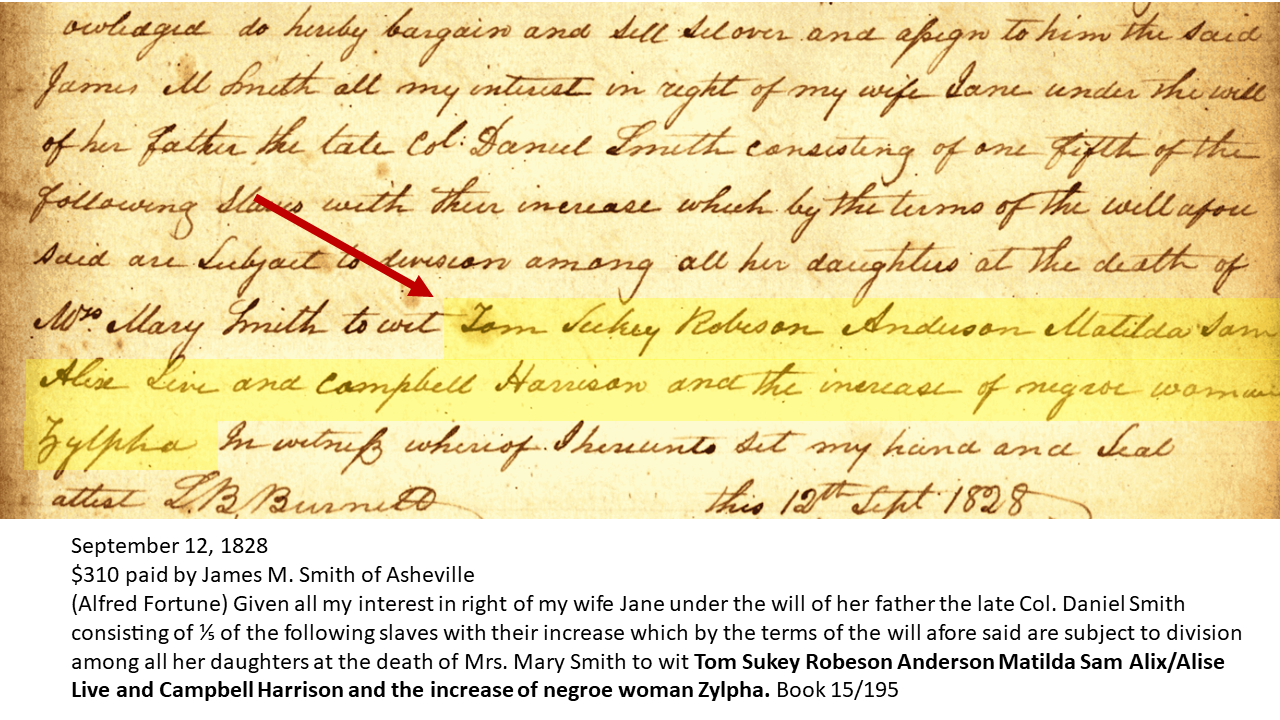 owledged do hereby bargain and sell set over and assign to him the said
James M Smith all my interest in right of my wife Jane under the will
of her father the late Col. Daniel Smith consisting of one fifth of the
following Slaves with their increase which by the terms of the will afore
said are Subject to division among all her daughters at the death of
Mrs. Mary Smith to wit Tom Sukey Robeson Anderson Matilda Sam
Alise Live and Campbell Harrison and the increase of negroe woman
Zylpha In witness whereof I hereunto set my hand and Seal
attest L.B. Burnett this 12th Sept 1828
September 12, 1828
$310 paid by James M. Smith of Asheville
(Alfred Fortune) Given all my interest in right of my wife Jane under the will of her father the late Col. Daniel Smith
consisting of ⅕ of the following slaves with their increase which by the terms of the will afore said are subject to division
among all her daughters at the death of Mrs. Mary Smith to wit Tom Sukey Robeson Anderson Matilda Sam Alix/Alise
Live and Campbell Harrison and the increase of negroe woman Zylpha. Book 15/195